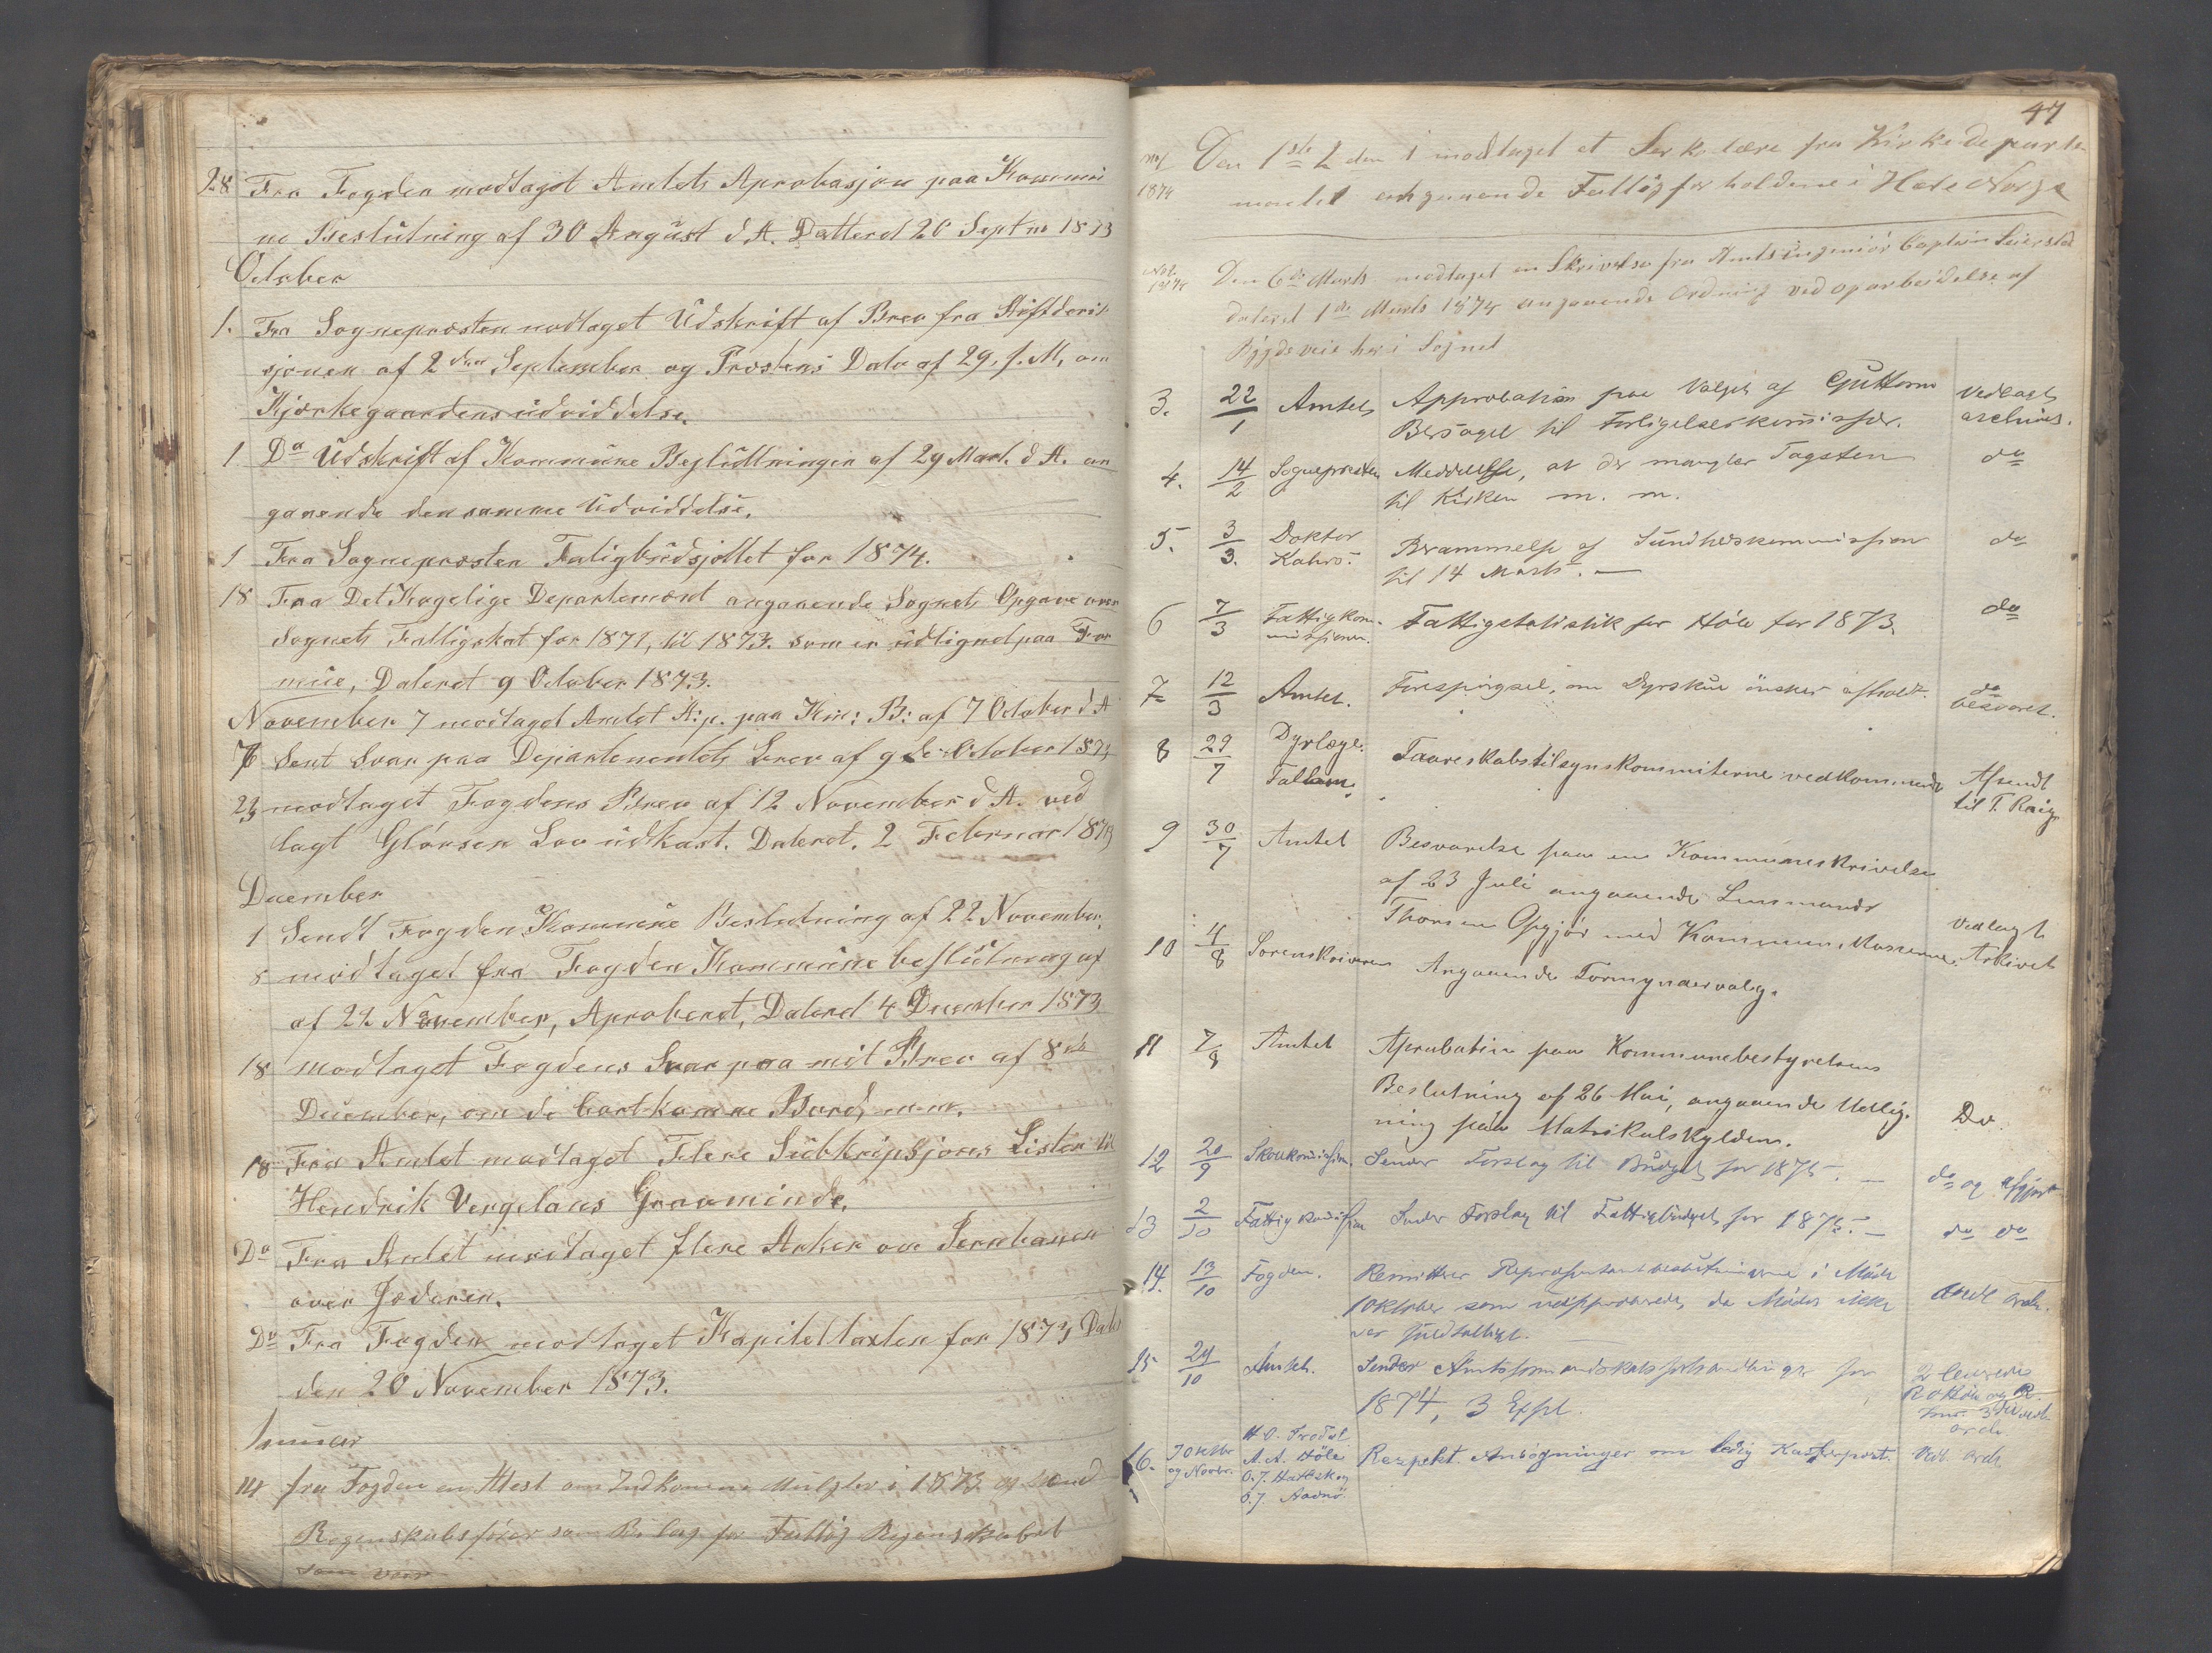 28 Fra Fogden modtaget Amtets Aprobasjon paa Kommu
ne Beslutning af 30 August d. A. Datterd 26 Septm 1873
October
1. Fra Sognepresten modtaget Udskrift af Brev fra Stiftderik
sjonen af 2den September og Prostens Dato af 29. f. M, om
Kjærkegaardens udviddelse.
1 Do Udskrift af Kommune Beslutningen af 29 Mart. d A. an
gaaende den samme Udviddelse.
1 Fra Sognepresten Fatigbudsjettet for 1874.
18 Fra Det Kogelige Departement angaaende Sognets Opgave over
Sognets Fattigskat for 1871, til 1873. som er udlignet paa For
mue, Dateret 9 October 1873.
November 7 modtaget Amtet A:p. paa Km: B: af 7 October d A
7 Sent Svar paa Departementets Brev af 9de October 1873
23 modtaget Fogdens Brev af 12 November d A. ved
lagt Glórsen Lov udkast. Dateret. 2 Februar 1873
December
1 Sendt Fogden Kommune Beslutning af 22 November.
8 modtaget fra Fogden Kommune beslutning af
af 22 November, Aproberet, Daterd 4 December 1873
18 modtaget Fogdens Svar paa mit Brev af 8de
December, om de bortkomne Bord m.m.
18 Fra Amtet modtaget Flere Subkripsjons Lister til
Hendrik Vergelans Gravminde.
Do Fra Amtet modtaget flere Arker om Jernbanen
over Jæderen.
Do Fra Fogden modtaget Kapiteltaxten for 1873 Dat
den 20 November 1873.
Januar
14 fra Fogden en Attest om Indkomne Mulgter i 1873 og send
Regenskabsfører som Bilag for Fattig Regenskabet
som vær
47
No 1
1874
Den 1ste 2den 1 modtaget et Serkelære fra Kirkedeparte
mentet anhgaaende Fattigforholdene i Hæle Norge
No 2
1874
Den 6te Marts modtaget en Skrivelse fra Amtsingeniør Captein Seiersted
dateret 1ste Marts 1874 angaaende Ordning ved oparbeidelse af
Bygdeveie her i Sognet
3. 22/1 Amtets Approbation paa Valget af Guttorm Vedlagts
Bersagel til Forligelseskommissær. archivet.
4. 14/2 Sognepresten Meddelelse, at der mangler Tagsten do
til Kirken m. m.
5. 3/3. Doktor Kahrs. Berammelse af Sundhedskommission do
til 14 Marts. —
6 7/3 Fattigkommissionen. Fattigstatistik for Høle for 1873. do
7 12/3 Amtet. Forespørgsel, om Dyrskue ønskes afholdt. do besvaret.
8 29/7 Dyrlæge Tallom. Faareskabstilsynskommiterne vedkommende Afsendt
til T. Reig.
9 30/7 Amtet Besvarelse paa en Kommuneskrivelse
af 23 Juli angaaende Lensmand
Thorsens Opgjør med Kommunekasserne. Vedlagt
10 4/8 Sorenskriveren Angaaende Formyndervalg. Arkivet
11 7/8 Amtet Aprobation paa Kommunebestyrelsens
Beslutning af 26 Mai, angaaende Udlig-
ning paa Matrikulskylden. Do
12 20/9 Skolekommission. Sender Forslag til Budget for 1875. — do og afgjort
13 2/10 Fattigkommission Sender Forslag til Fattigbudget for 1875. — do do
14. 13/10 Fogden. Remitterer Repræsentantbeslutningerne i Møde
1 Oktober som uapproberede, da Mødet ikke vedl arch.
var fuldtalligt. —
15 24/10 Amtet. Sender Amtsformandskabsforhandlinger for 2 leverede
1874, 3 Expl.
16. I Oktbr og Novbr. A. A. Høle Respekt. Ansøgninger om ledig Kassererpost. Vedl. arch.